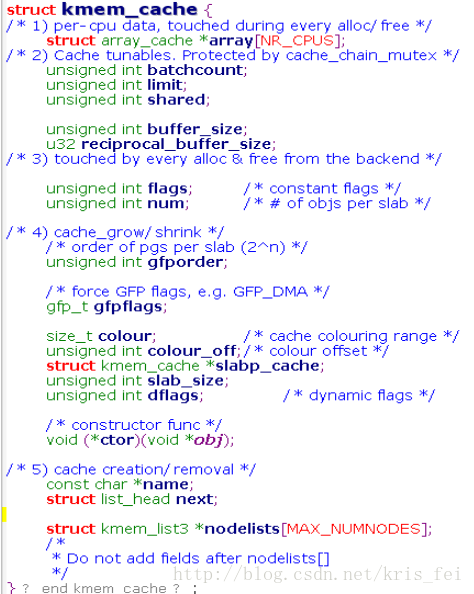 struct kmem_cache {
/* 1) per-cpu data, touched during every alloc/free */
struct array_cache *array[NR_CPUS];
/* 2) Cache tunables. Protected by cache_chain_mutex */
unsigned int batchcount;
unsigned int limit;
unsigned int shared;
unsigned int buffer_size;
u32 reciprocal_buffer_size;
/* 3) touched by every alloc & free from the backend */
unsigned int flags; /* constant flags */
unsigned int num; /* # of objs per slab */
/* 4) cache_grow/shrink */
/* order of pgs per slab (2^n) */
unsigned int gfporder;
/* force GFP flags, e.g. GFP_DMA */
gfp_t gfpflags;
size_t colour; /* cache colouring range */
unsigned int colour_off; /* colour offset */
struct kmem_cache *slabp_cache;
unsigned int slab_size;
unsigned int dflags; /* dynamic flags */
/* constructor func */
void (*ctor)(void *obj);
/* 5) cache creation/removal */
const char *name;
struct list_head next;
struct kmem_list3 *nodelists[MAX_NUMNODES];
/*
* Do not add fields after nodelists[]
*/
http://blog.csdn.net/kris_fei
} ? end kmem_cache ? ;